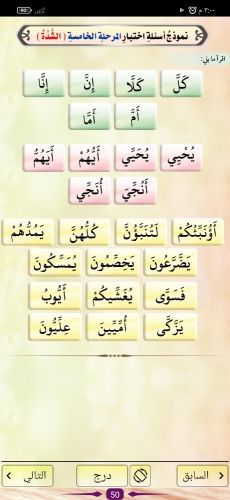 ٣:٠٠ م
نموذج أسئلة اختبار المرحلة الخامسة ( الشَّدَّة )
اقرأ ما يلي:
كَلَّ كَلَّا إِنَّ إِنَّا
أَمَّ أَمَّا
يُحْيِي يُحَيِّي أَيُّهُمْ أَيَّهُمْ
أُنْجِيَ أُنَجِّي
أَؤُنَبِّئُكُمْ لَتُنَبَّؤُنَّ كُلُّهُنَّ يَمُدُّهُمْ
يَضَّرَّعُونَ يَخِصِّمُونَ يُمَسِّكُونَ
فَسَوَّى يُغَشِّيكُمْ أَيُّوبُ
يَزَّكَّى أُمِّيِّينَ عِلِّيُّونَ
السابق درج التالي
50